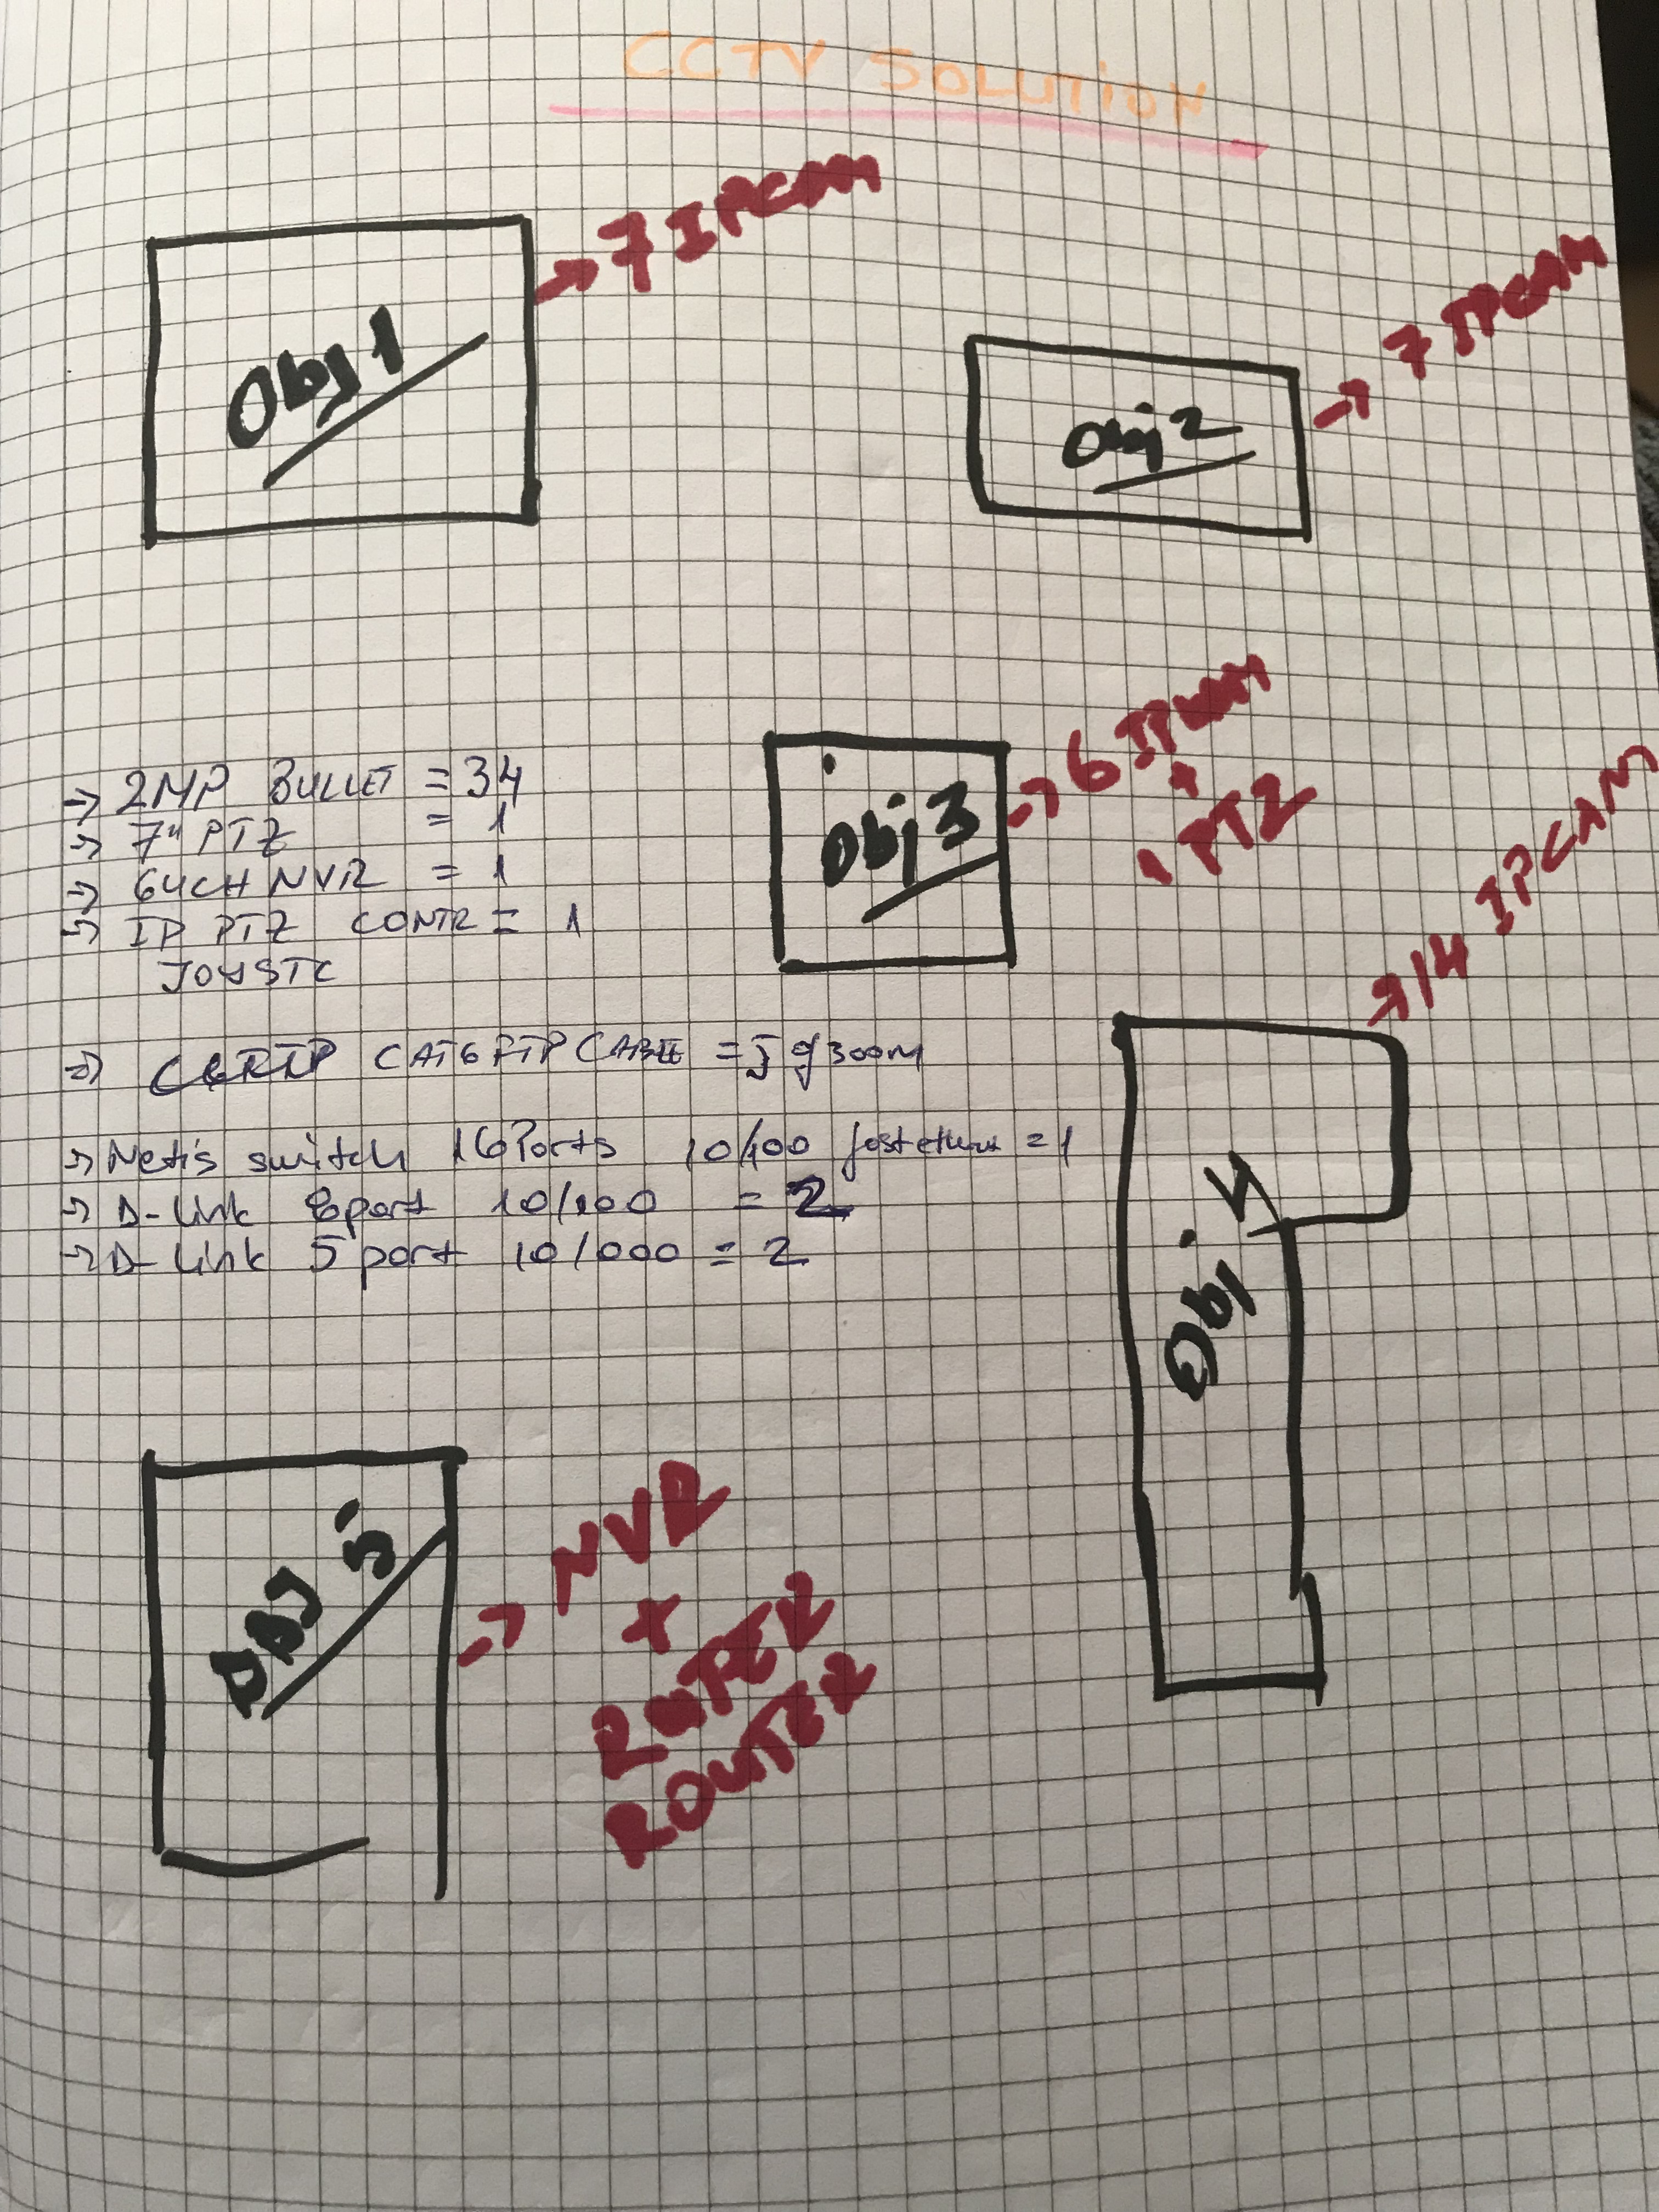 CCTV SOLUTION
Obj 1
→ 7 IPCAM
Obj 2
→ 7 IPCAM
→ 2MP BULLET = 34
→ 7" PTZ = 1
→ 64CH NVR = 1
→ IP PTZ CONTR = 1
JOYSTC
Obj 3
→ 6 IPCAM
+
1 PTZ
→ CAT6 FTP CABLE = 300m
→ Netis switch 16Ports 10/100 = 1
→ D-Link 8port 10/100 = 2
→ D-Link 5 port 10/1000 = 2
→ 14 IPCAM
Obj 4
OBJ 5
→ NVR
+
ROUTER